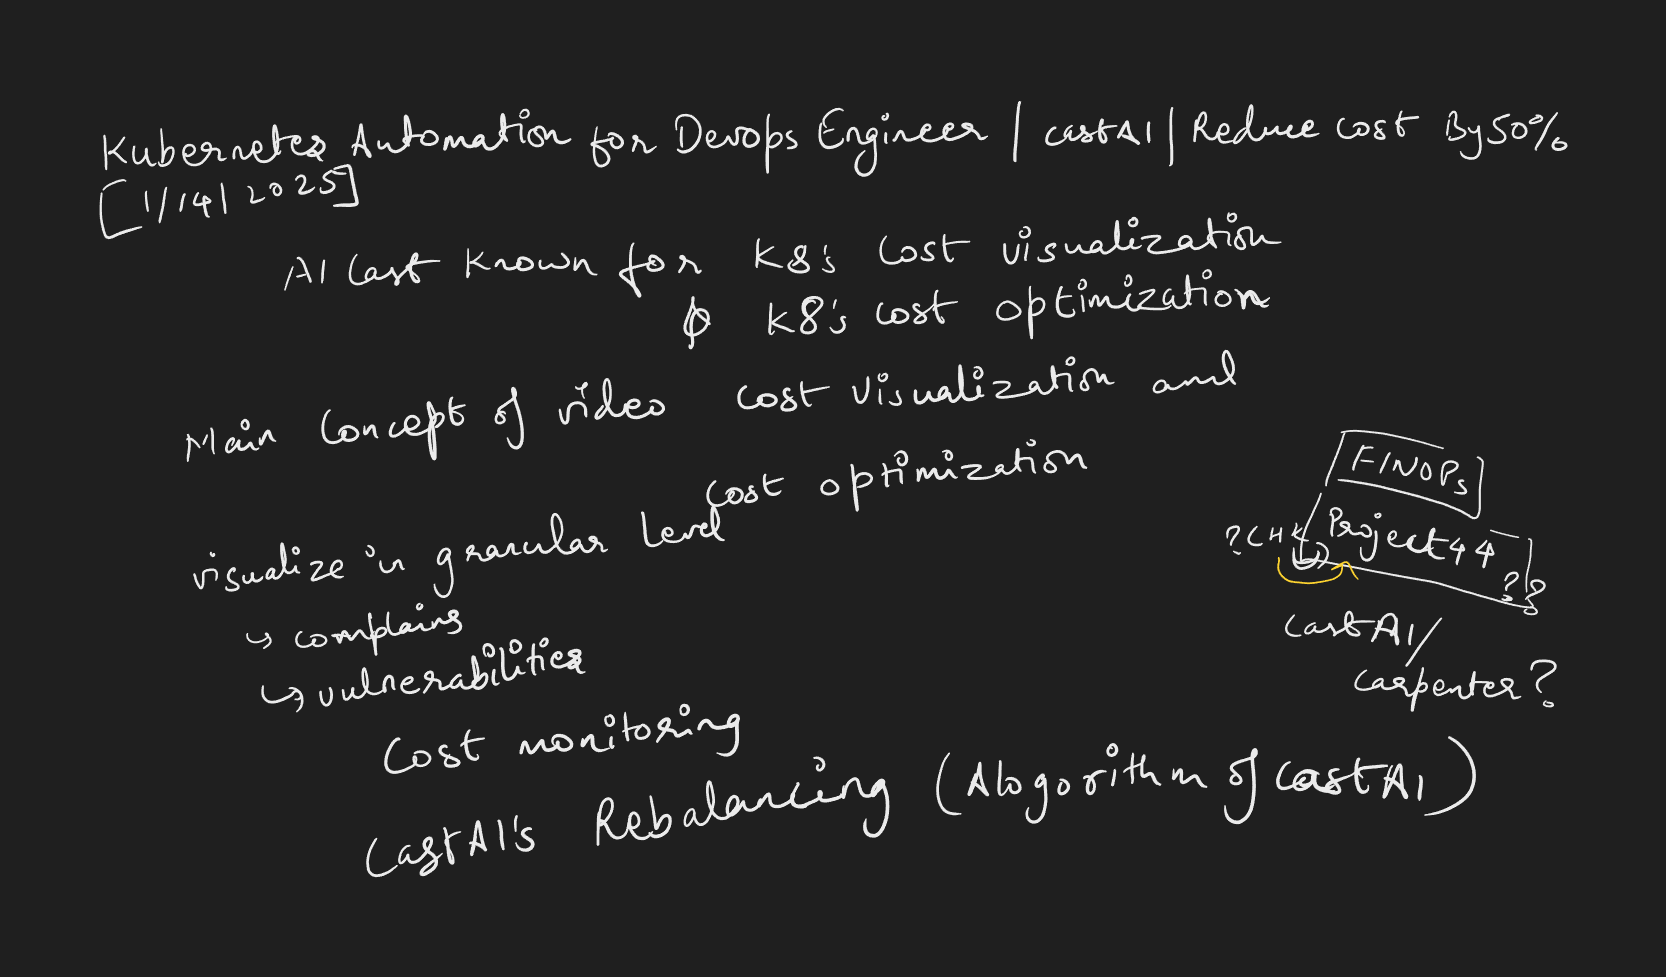 Kubernetes Automation for Devops Engineer | castAI | Reduce cost By 50%
[1/14/2025]
AI Cast known for K8's cost visualization
& K8's cost optimization
Main Concept of video cost visualization and
cost optimization
visualize in granular level
↳ complains
↳ vulnerabilities
Cost monitoring
CastAI's Rebalancing (Alogorithm of castAI)
FINOPs
Project44
??
castAI/
carpenter?